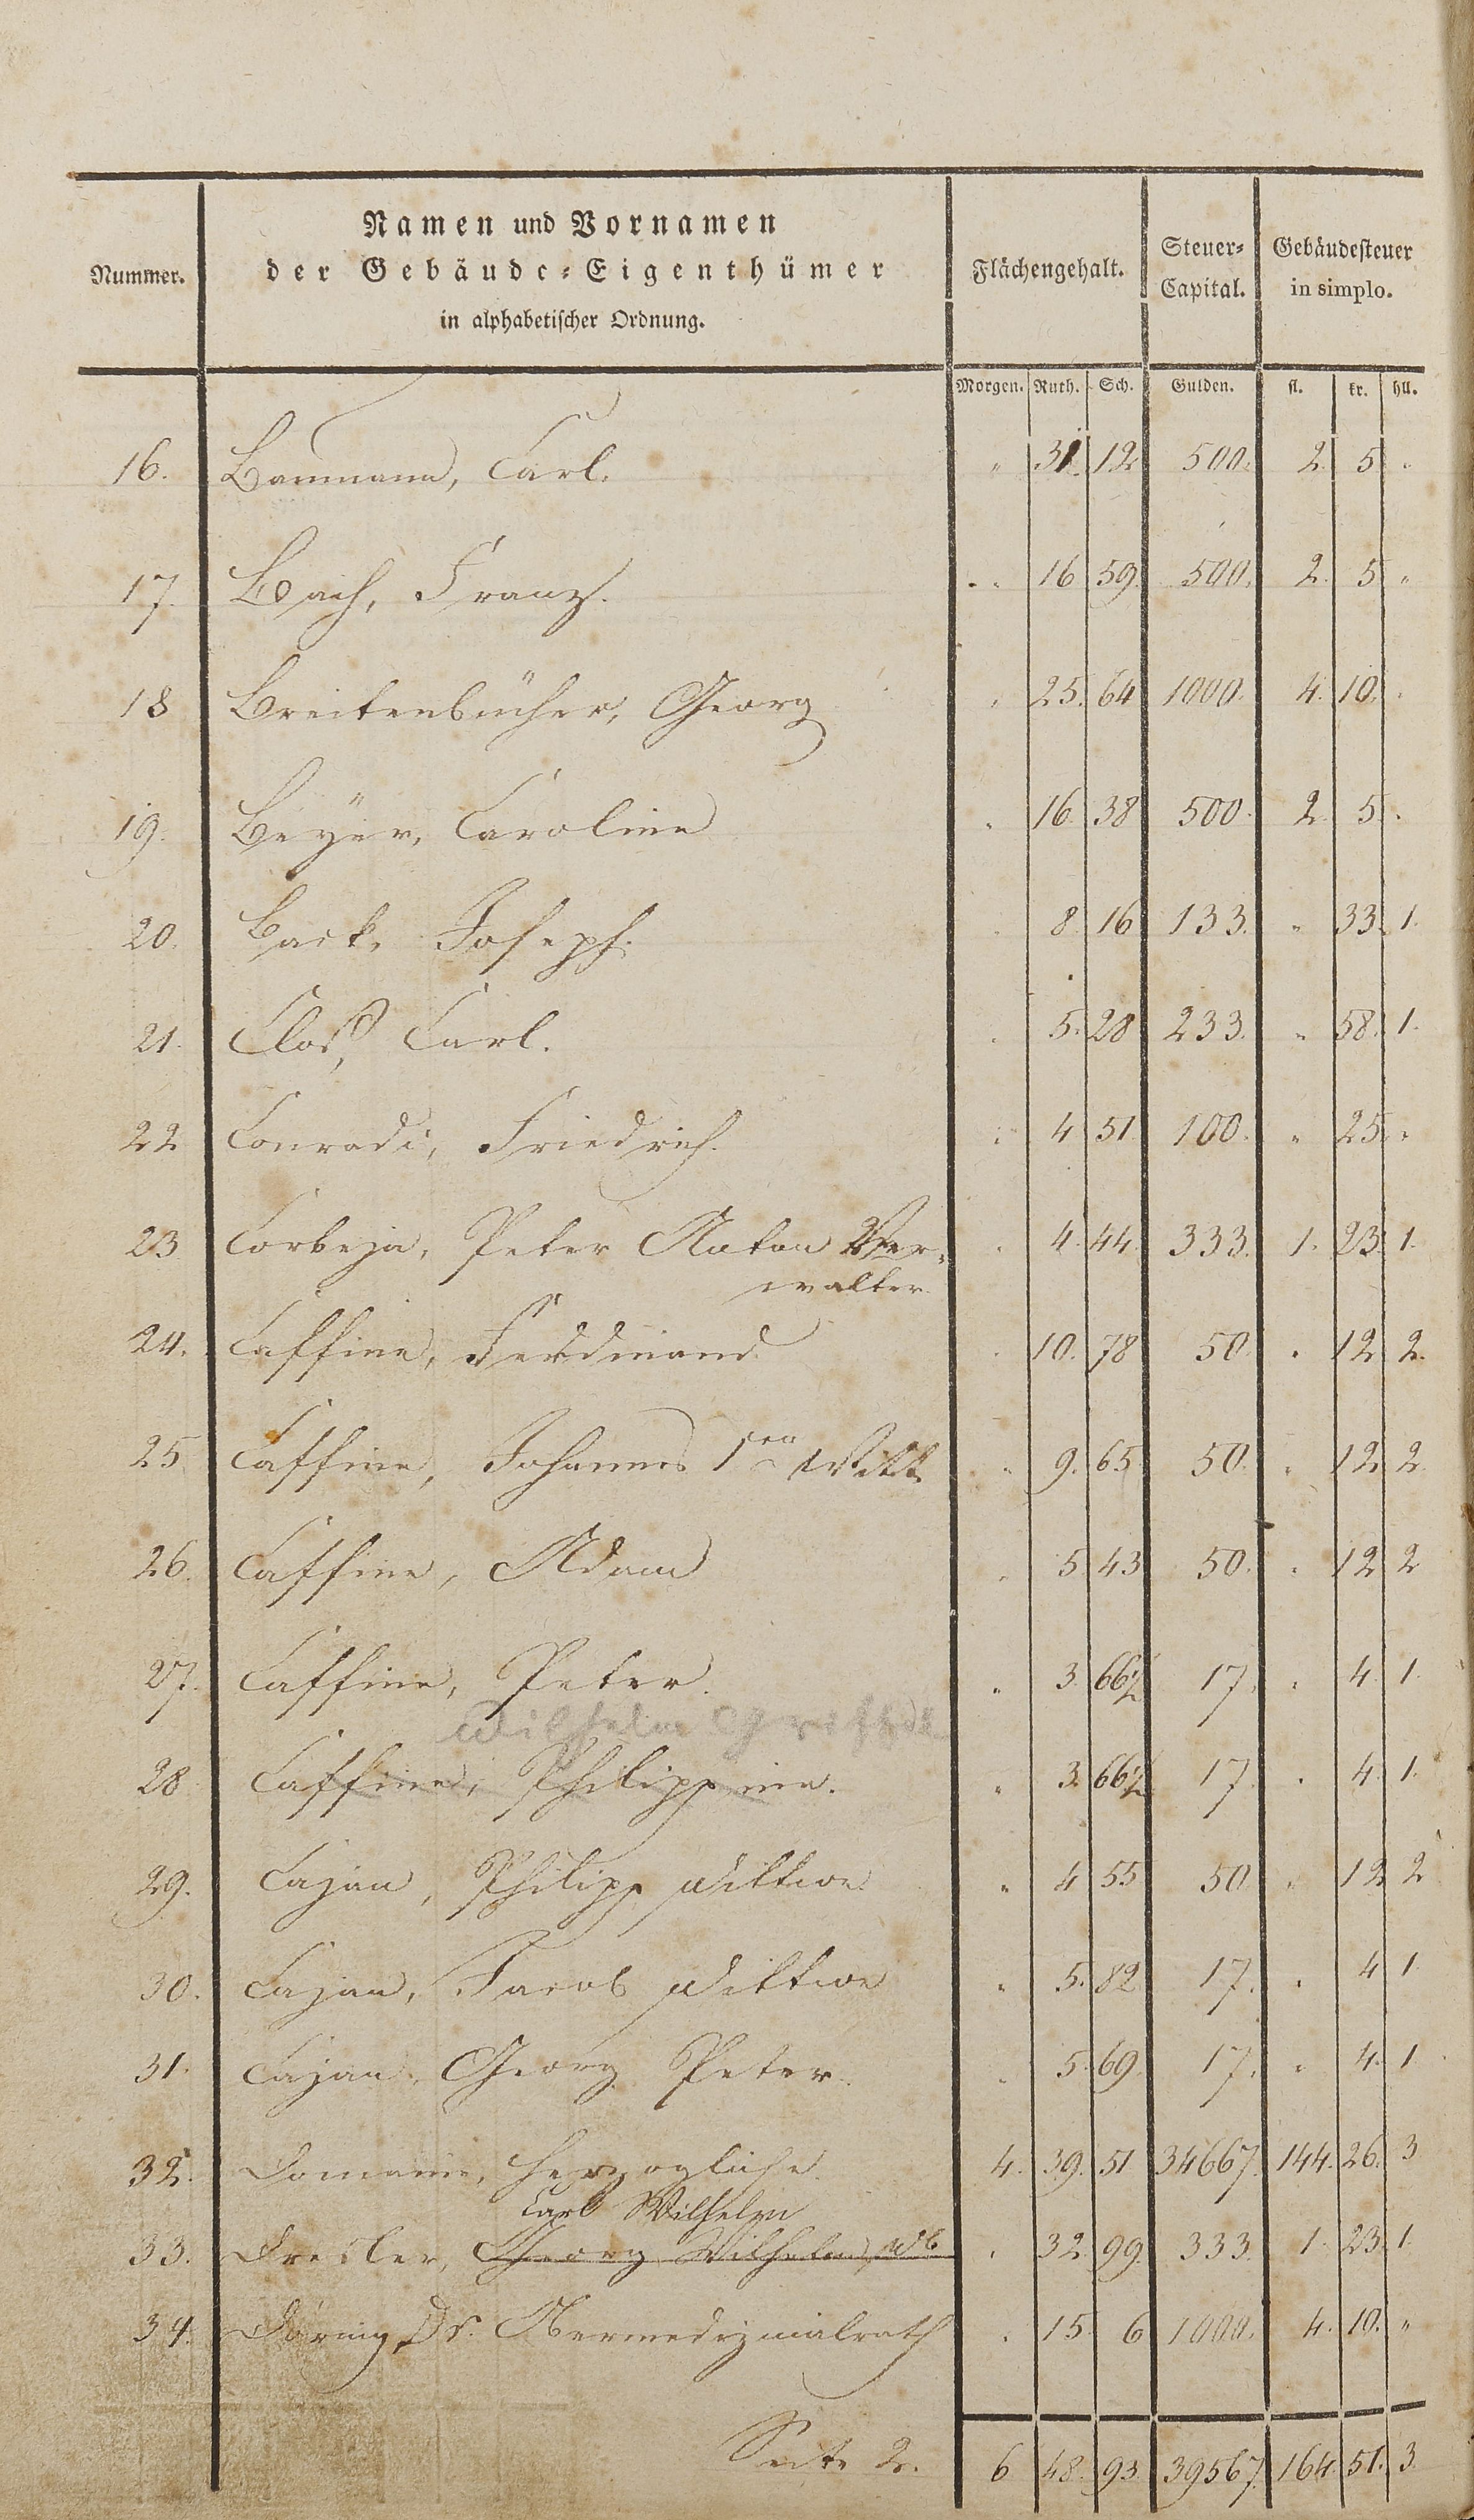 Nummer.
Namen und Vornamen
der Gebäude-Eigenthümer
in alphabetischer Ordnung.
Flächengehalt.
Steuer-
Capital.
Gebäudesteuer
in simplo.
Morgen. Ruth. Sch. Gulden. fl. kr. hll.
16. Baumann, Carl. " 31 12 500. 2. 5 "
17. Bach, Franz. " 16 59. 500. 2. 5 "
18 Breitenbücher, Georg " 25. 64 1000. 4. 10. "
19. Beÿer, Caroline " 16. 38 500. 2. 5. "
20. Back, Joseph. " 8. 16 133. " 33. 1.
21. Closs, Carl. " 5. 28 233. " 58. 1.
22 Conradi, Friedrich. " 4 51 100. " 25. "
23 Corbeja, Peter Anton Ver-
walter. " 4. 44. 333. 1. 23. 1.
24. Caffine, Ferdinand " 10. 78 50. " 12. 2.
25 Caffine, Johannes 1ten Witt. " 9. 65. 50. " 12. 2
26. Caffine, Adam " 5 43 50. " 12 2
27. Caffine, Peter. " 3. 66½ 17. " 4. 1.
Wilhelm
28 Caffine, Philippine. " 3. 66½ 17. " 4. 1.
29. Cajan, Philipp Wittwe " 4 55 50 " 12 2
30. Cajan, Jacob Wittwe " 5. 82 17. " 4 1
31. Cajan, Georg Peter. " 5. 69. 17. " 4. 1
32. Domaine, Herzogliche. 4. 39. 51 34667. 144. 26. 3
Carl Wilhelm
33. Dresler, Georg Wilhelm Wb " 32 99. 333. 1. 23. 1.
34. Döring, Dr. Obermedizinalrath " 15. 6 1000. 4. 10. "
Seite 2. 6 48. 93 39567. 164. 51. 3.